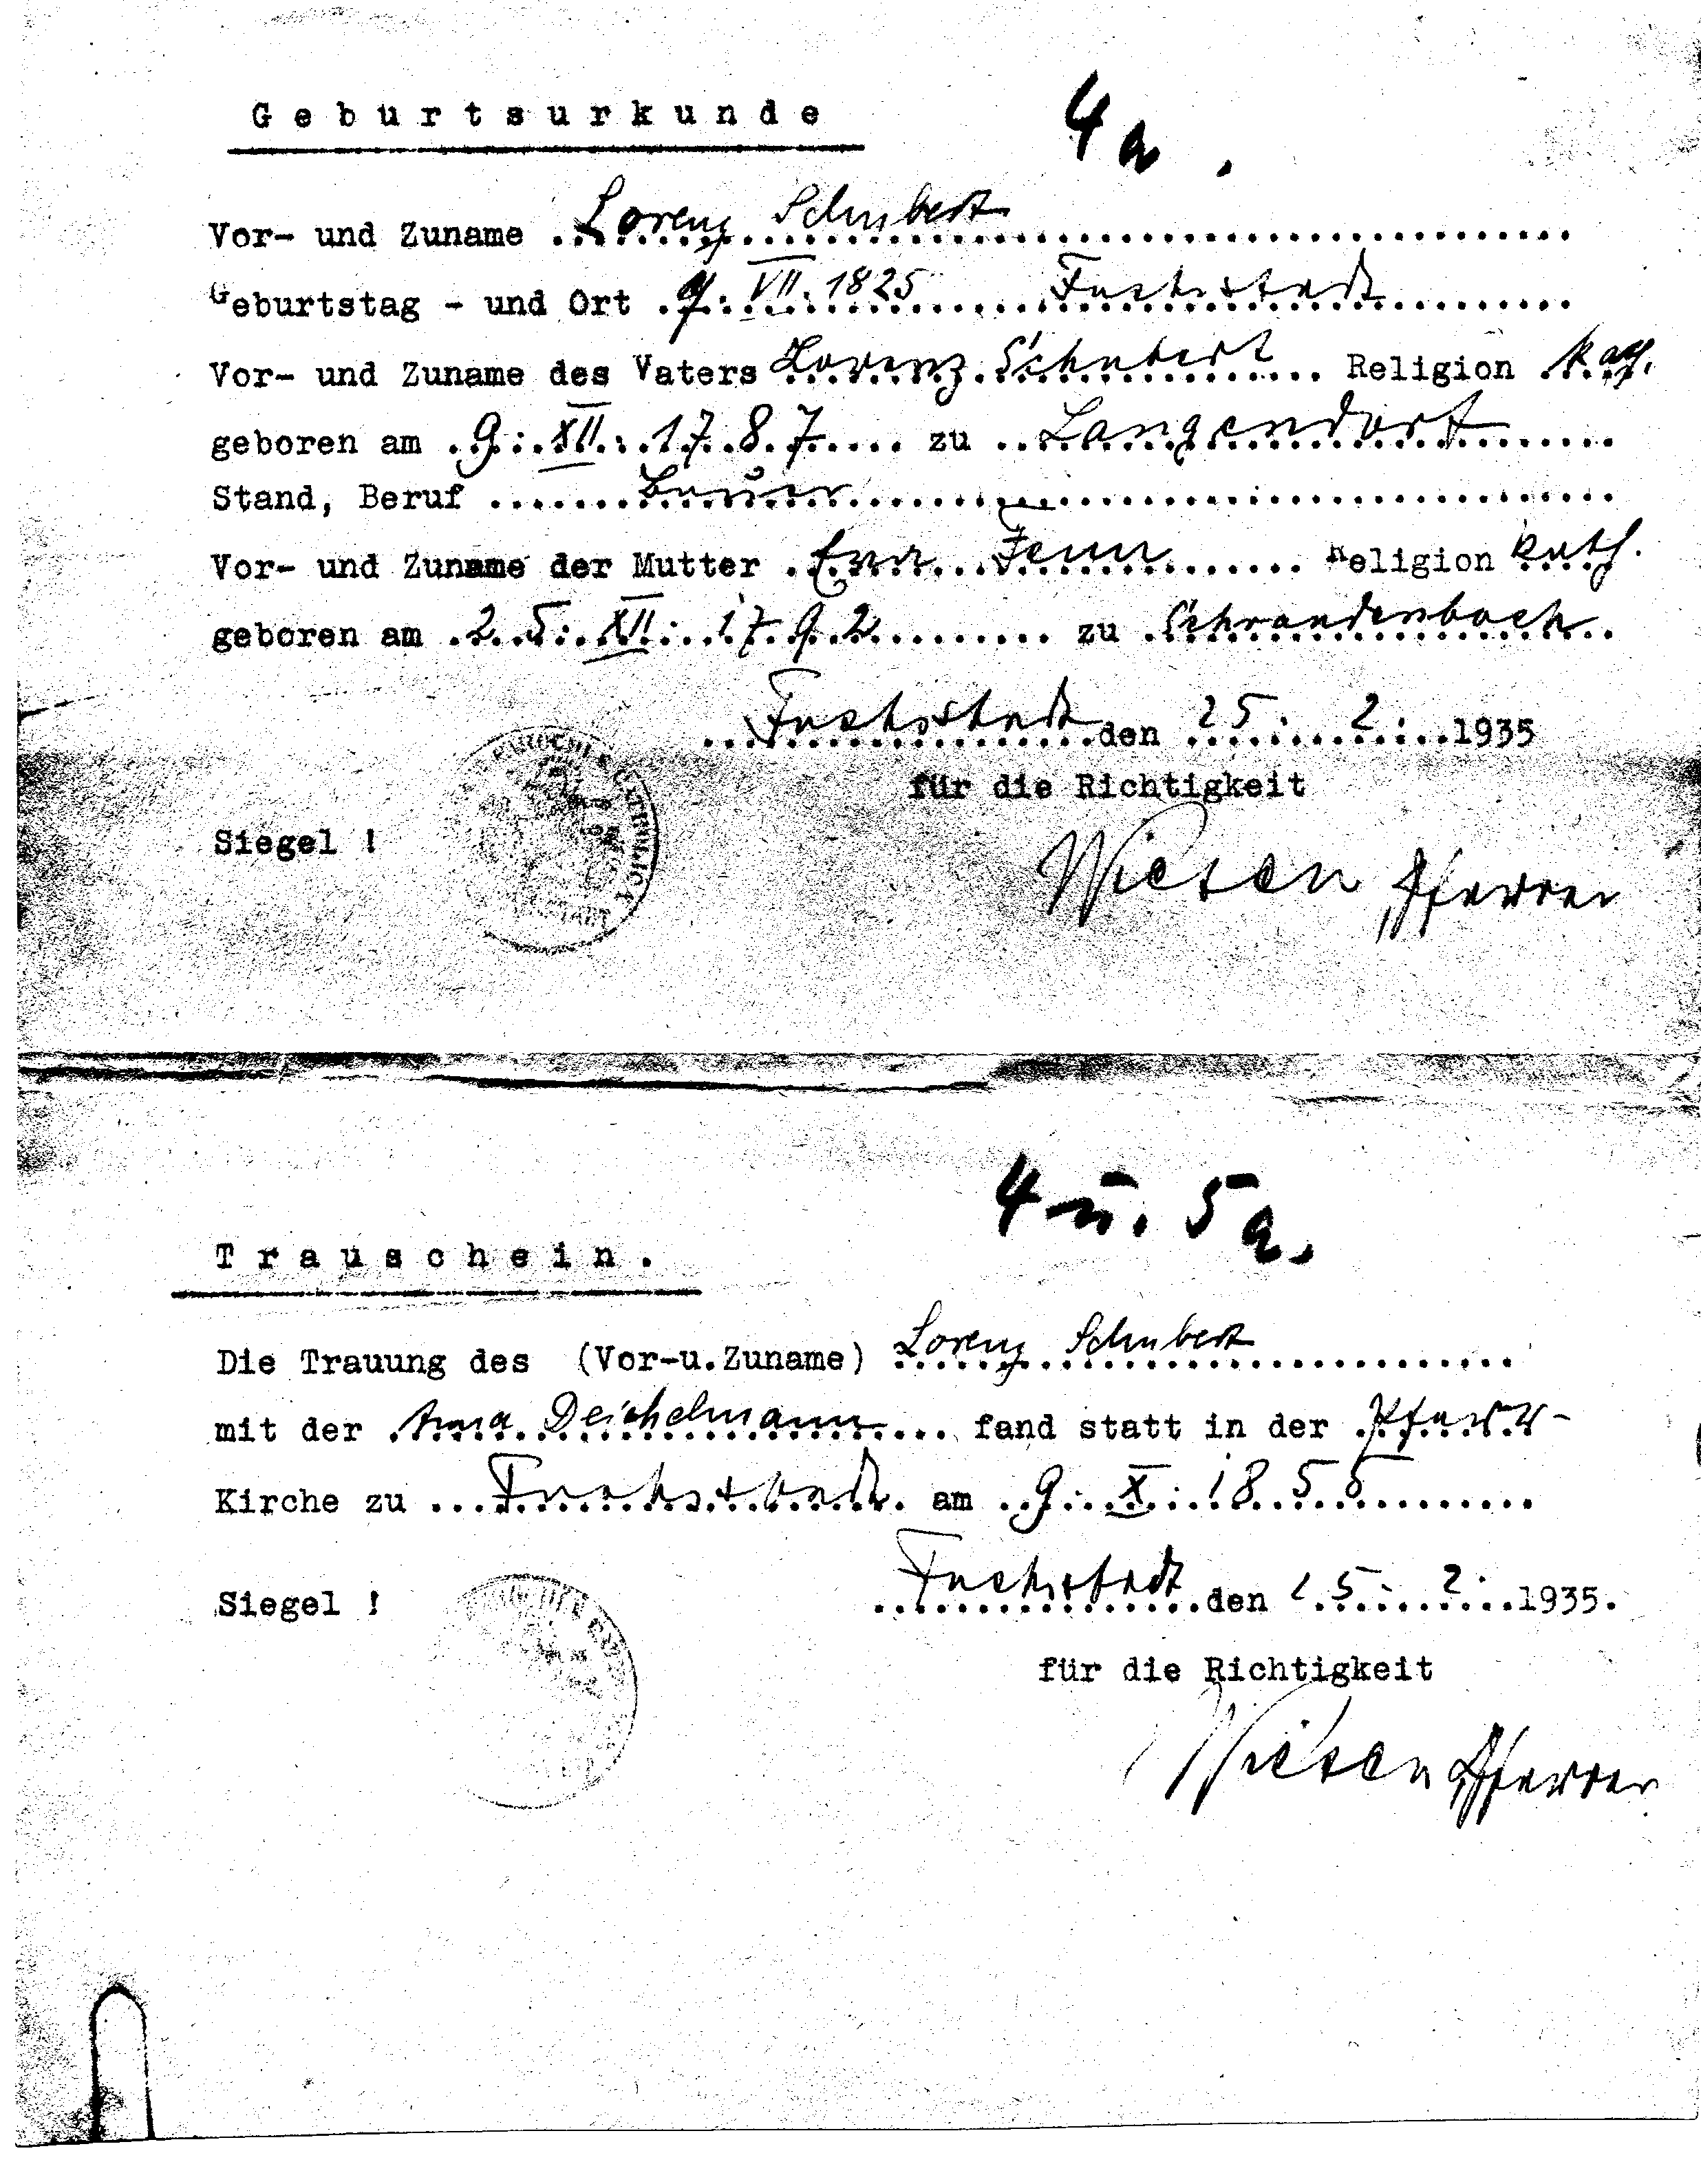 Geburtsurkunde
4a.
Vor- und Zuname Lorenz Schubert
Geburtstag - und Ort 9. VII. 1825 Fuchsstadt
Vor- und Zuname des Vaters Lorenz Schubert Religion kath.
geboren am 9. XII. 1787 zu Langendorf
Stand, Beruf Bauer
Vor- und Zuname der Mutter Eva Fenn Religion kath.
geboren am 25. XII. 1792 zu Schraudenbach
Fuchsstadt den 25. 2. 1935
für die Richtigkeit
Siegel !
Pfarrer
4 u. 5a.
Trauschein.
Die Trauung des (Vor-u.Zuname) Lorenz Schubert
mit der Anna Deichelmann fand statt in der Pfarr-
Kirche zu Fuchsstadt am 9. X. 1855
Fuchsstadt den 25. 2. 1935.
Siegel !
für die Richtigkeit
Pfarrer